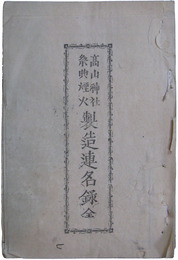 高山神社
祭典煙火
製造連名録 全